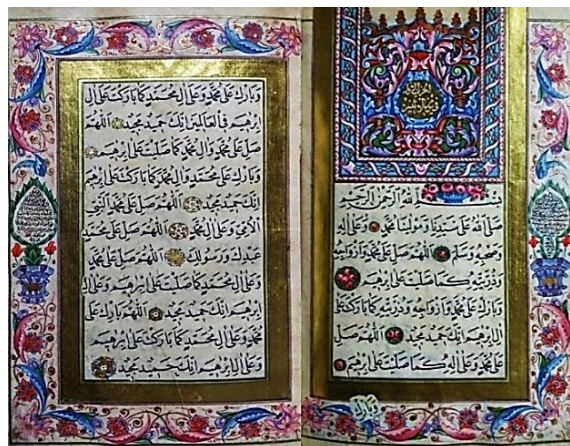 بسم الله الرحمن الرحيم
صلى الله على سيدنا ومولينا محمد وعلى اله
وصحبه وسلم اللهم صل على محمد وازواجه
وذريته كما صليت على ابرهيم
وبارك على محمد وازواجه وذريته كما باركت على
ال ابرهيم انك حميد مجيد اللهم صل
على محمد وعلى اله كما صليت على ابرهيم
وبارك
وبارك على محمد وعلى ال محمد كما باركت على ال
ابرهيم في العالمين انك حميد مجيد اللهم
صل على محمد وال محمد كما صليت على ابرهيم
وبارك على محمد وال محمد كما باركت على ابرهيم
انك حميد مجيد اللهم صل على محمد النبي
الامي وعلى ال محمد اللهم صل على محمد
عبدك ورسولك اللهم صل على محمد
وعلى ال محمد كما صليت على ابرهيم وعلى ال
ابرهيم انك حميد مجيد اللهم بارك على
محمد وعلى ال محمد كما باركت على ابرهيم
وعلى ال ابرهيم انك حميد مجيد